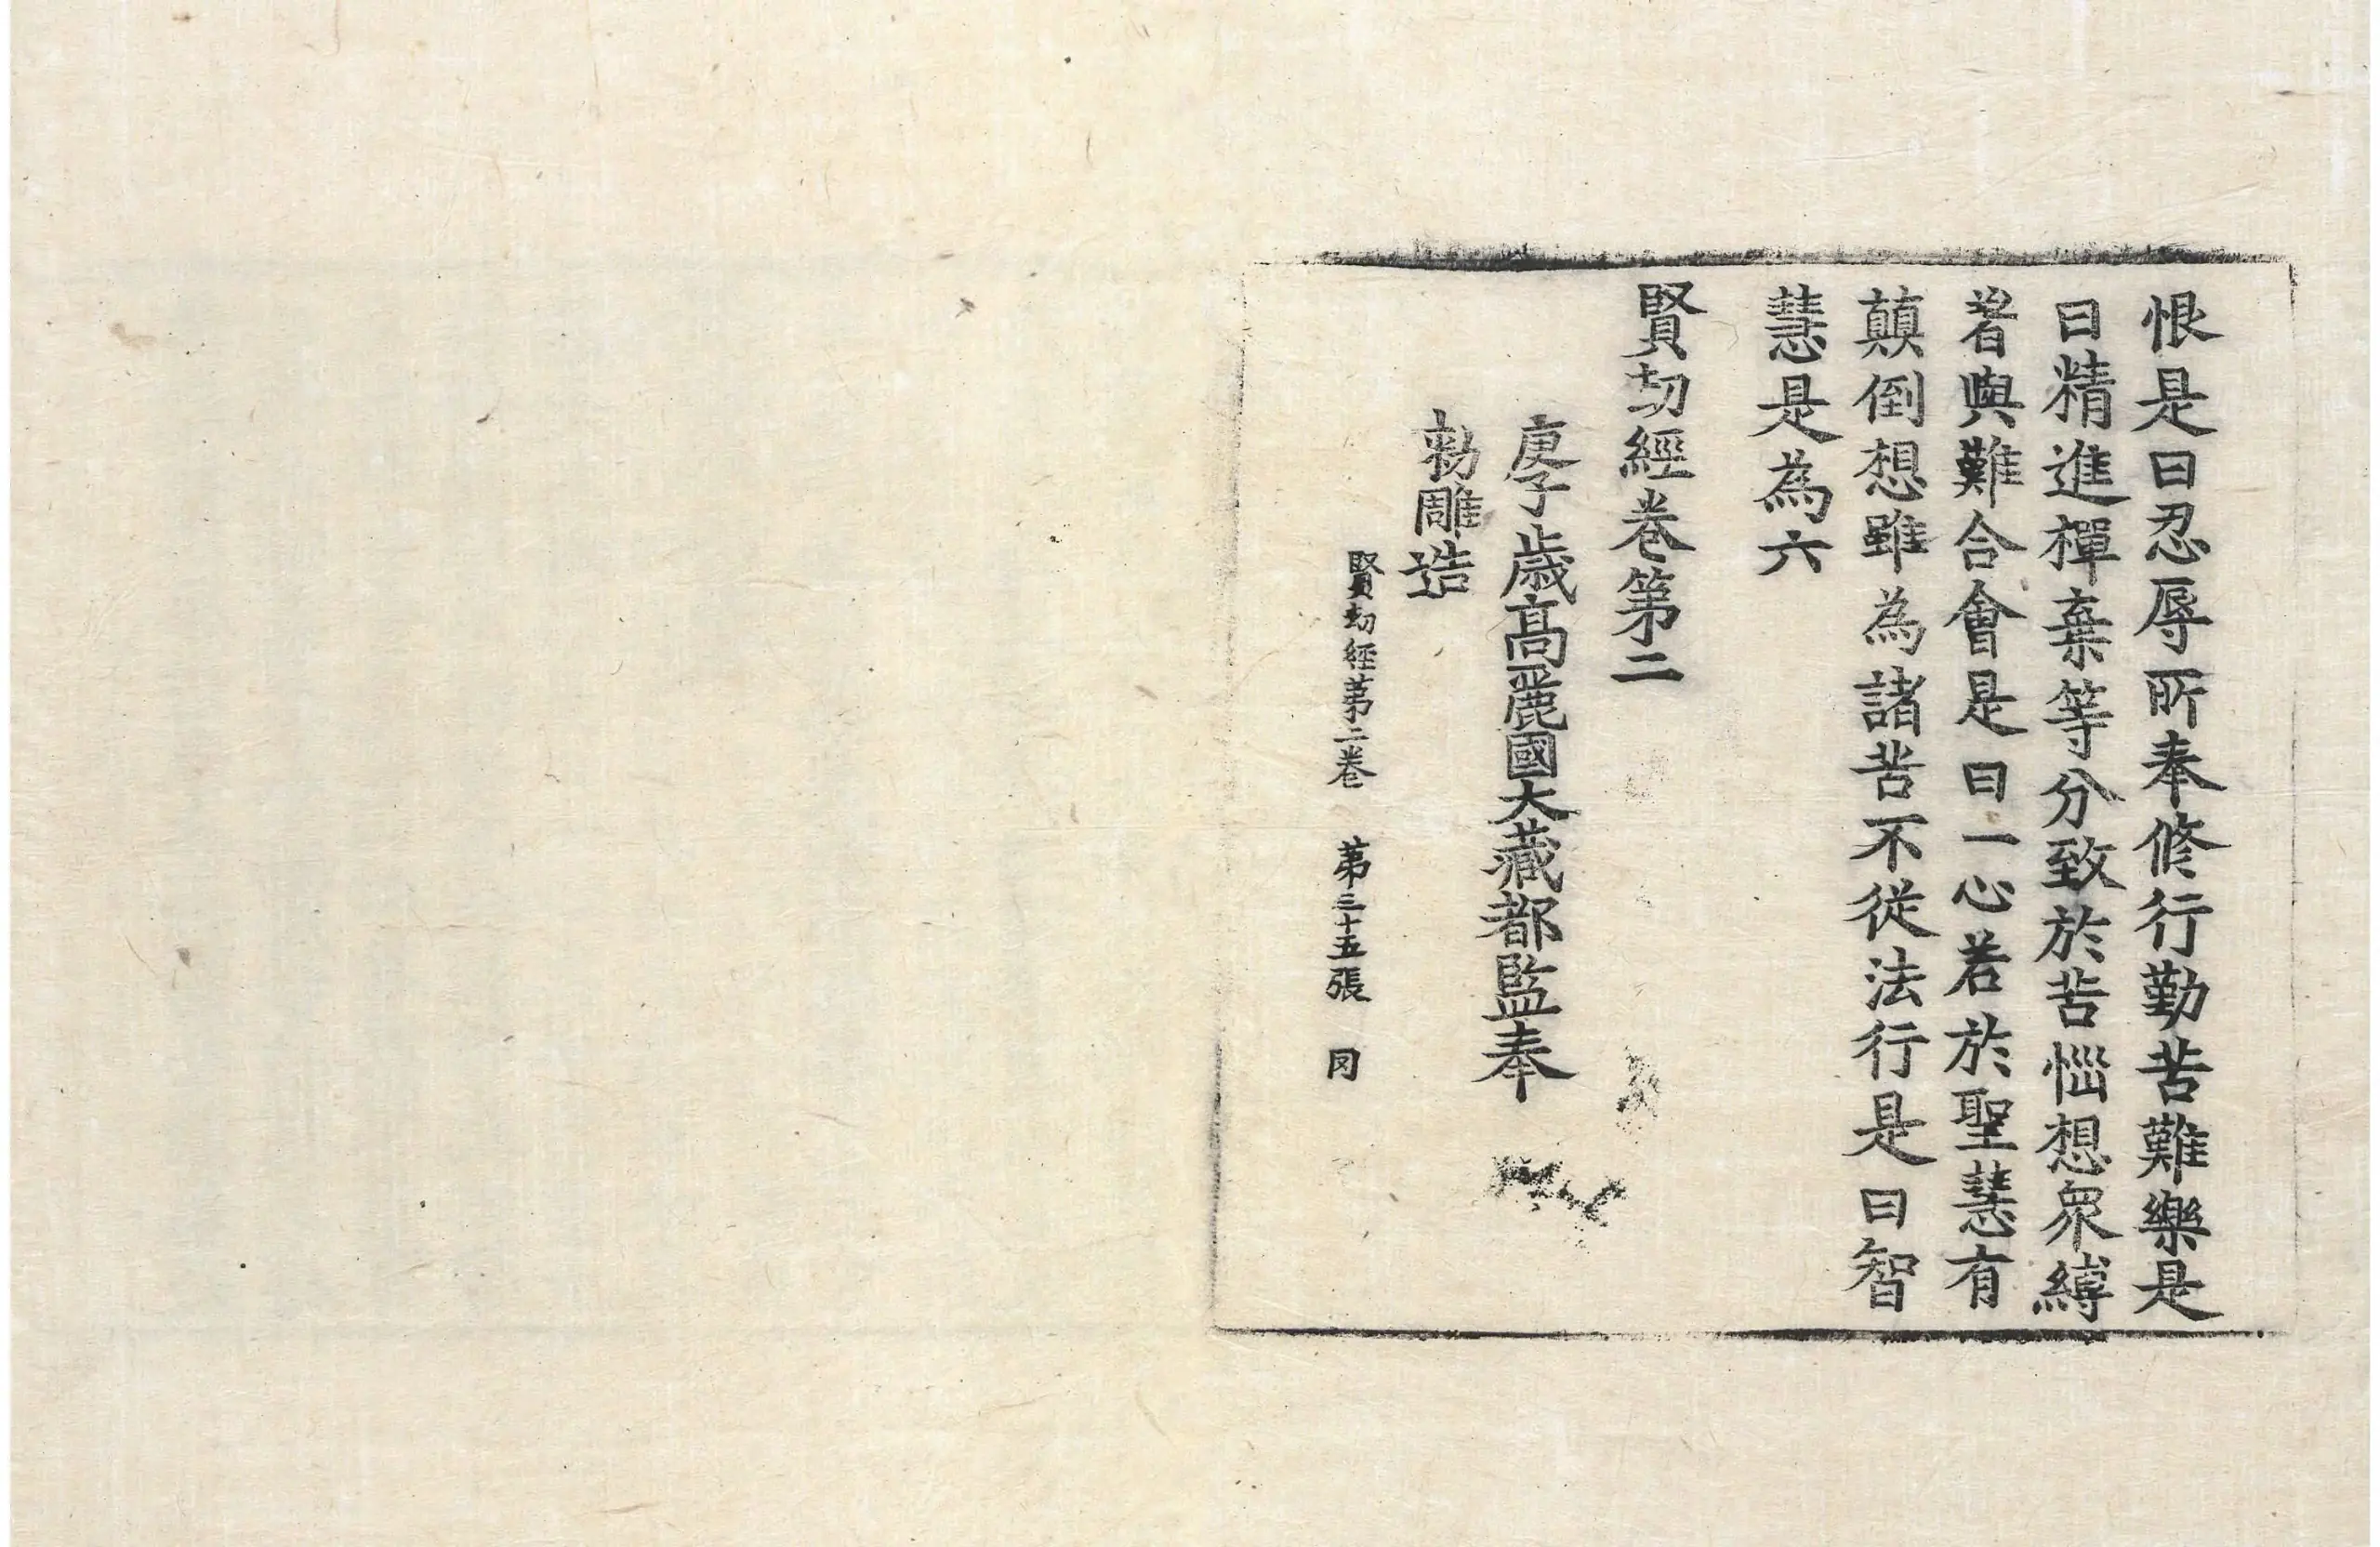 恨是曰忍辱所奉修行勤苦難樂是
曰精進襌棄等分致於苦惱想衆縛
著與難合會是曰一心若於聖慧有
顛倒想雖為諸苦不從法行是曰智
慧是為六
賢劫經卷第二
庚子歲高麗國大藏都監奉
勅雕造
賢劫經第二卷 第三十五張